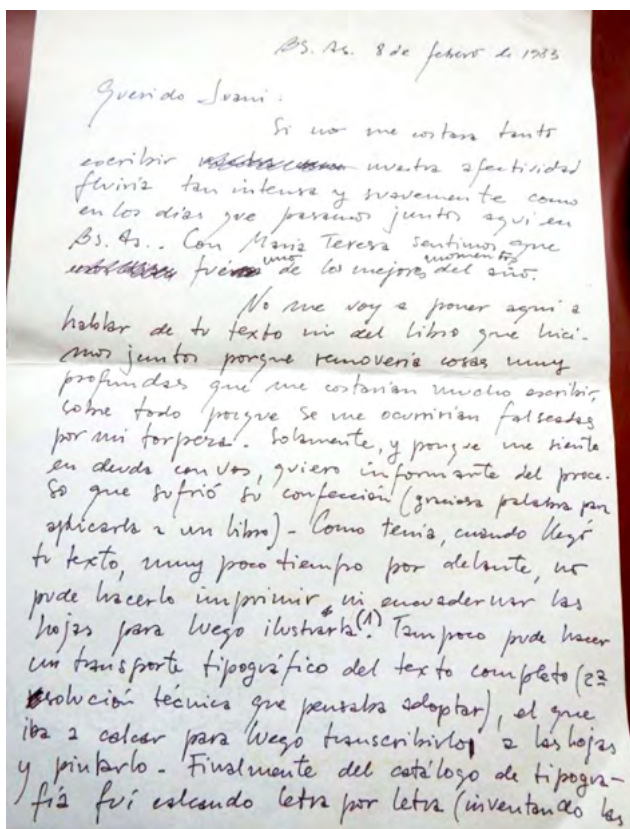 Bs. As. 8 de febrero de 1983
Querido Juani:
Si no me costara tanto
escribir nuestra afectividad
fluiría tan intensa y suavemente como
en los días que pasamos juntos aquí en
Bs. As.. Con María Teresa sentimos que
fué uno de los mejores momentos del año.
No me voy a poner aquí a
hablar de tu texto ni del libro que hici-
mos juntos porque removería cosas muy
profundas que me costarían mucho escribir,
sobre todo porque se me ocurrirían falseadas
por mi torpeza. Solamente, y porque me siento
en deuda con vos, quiero informarte del proce-
so que sufrió su confección (graciosa palabra para
aplicarla a un libro) - Como tenía, cuando llegó
tu texto, muy poco tiempo por delante, no
pude hacerlo imprimir ni encuadernar las
hojas para luego ilustrarla (1). Tampoco pude hacer
un transporte tipográfico del texto completo (2ª
solución técnica que pensaba adoptar), el que
iba a calcar para luego transcribirlo a las hojas
y pintarlo - Finalmente del catálogo de tipogra-
fía fuí calcando letra por letra (inventando las